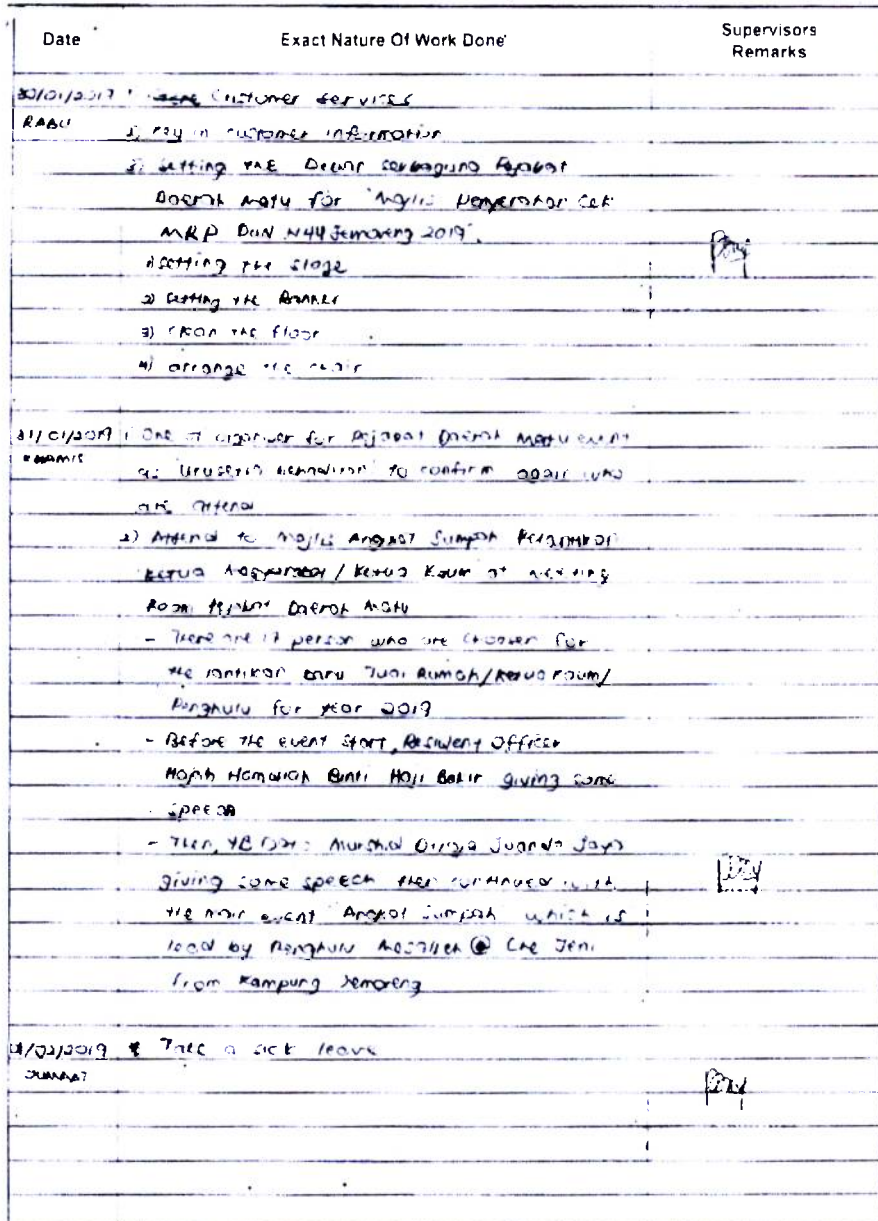 Date Exact Nature Of Work Done Supervisors Remarks
30/01/2019 Customer Services
RABU
2) Key in customer information
3) Setting the Dewan Serbaguna Pejabat
Daerah Matu for "Majlis Penyerahan Cek
MRP DUN N44 Jemoreng 2019".
1) Setting the stage
2) Setting the Banner
3) Clean the floor
4) arrange the chair
31/01/2019 1 One of organiser for Pejabat Daerah Matu event
KHAMIS
as Urusetia to confirm again who
are attend
2) Attend to Majlis Angkat Sumpah
Ketua Masyarakat / Ketua Kaum at meeting
Room Pejabat Daerah Matu
- There are 17 person who are choosen for
the lantikan baru Tuai Rumah/Ketua Kaum/
Penghulu for year 2019
- Before the event start, Resident Officer
Hajah Binti Haji Bakir giving some
speech
- Then, YB Juanda Jaya
giving some speech then continued with
the main event "Angkat Sumpah" which is
lead by Penghulu @ Che Jeni
from Kampung Jemoreng
01/02/2019 * Take a sick leave
JUMAAT